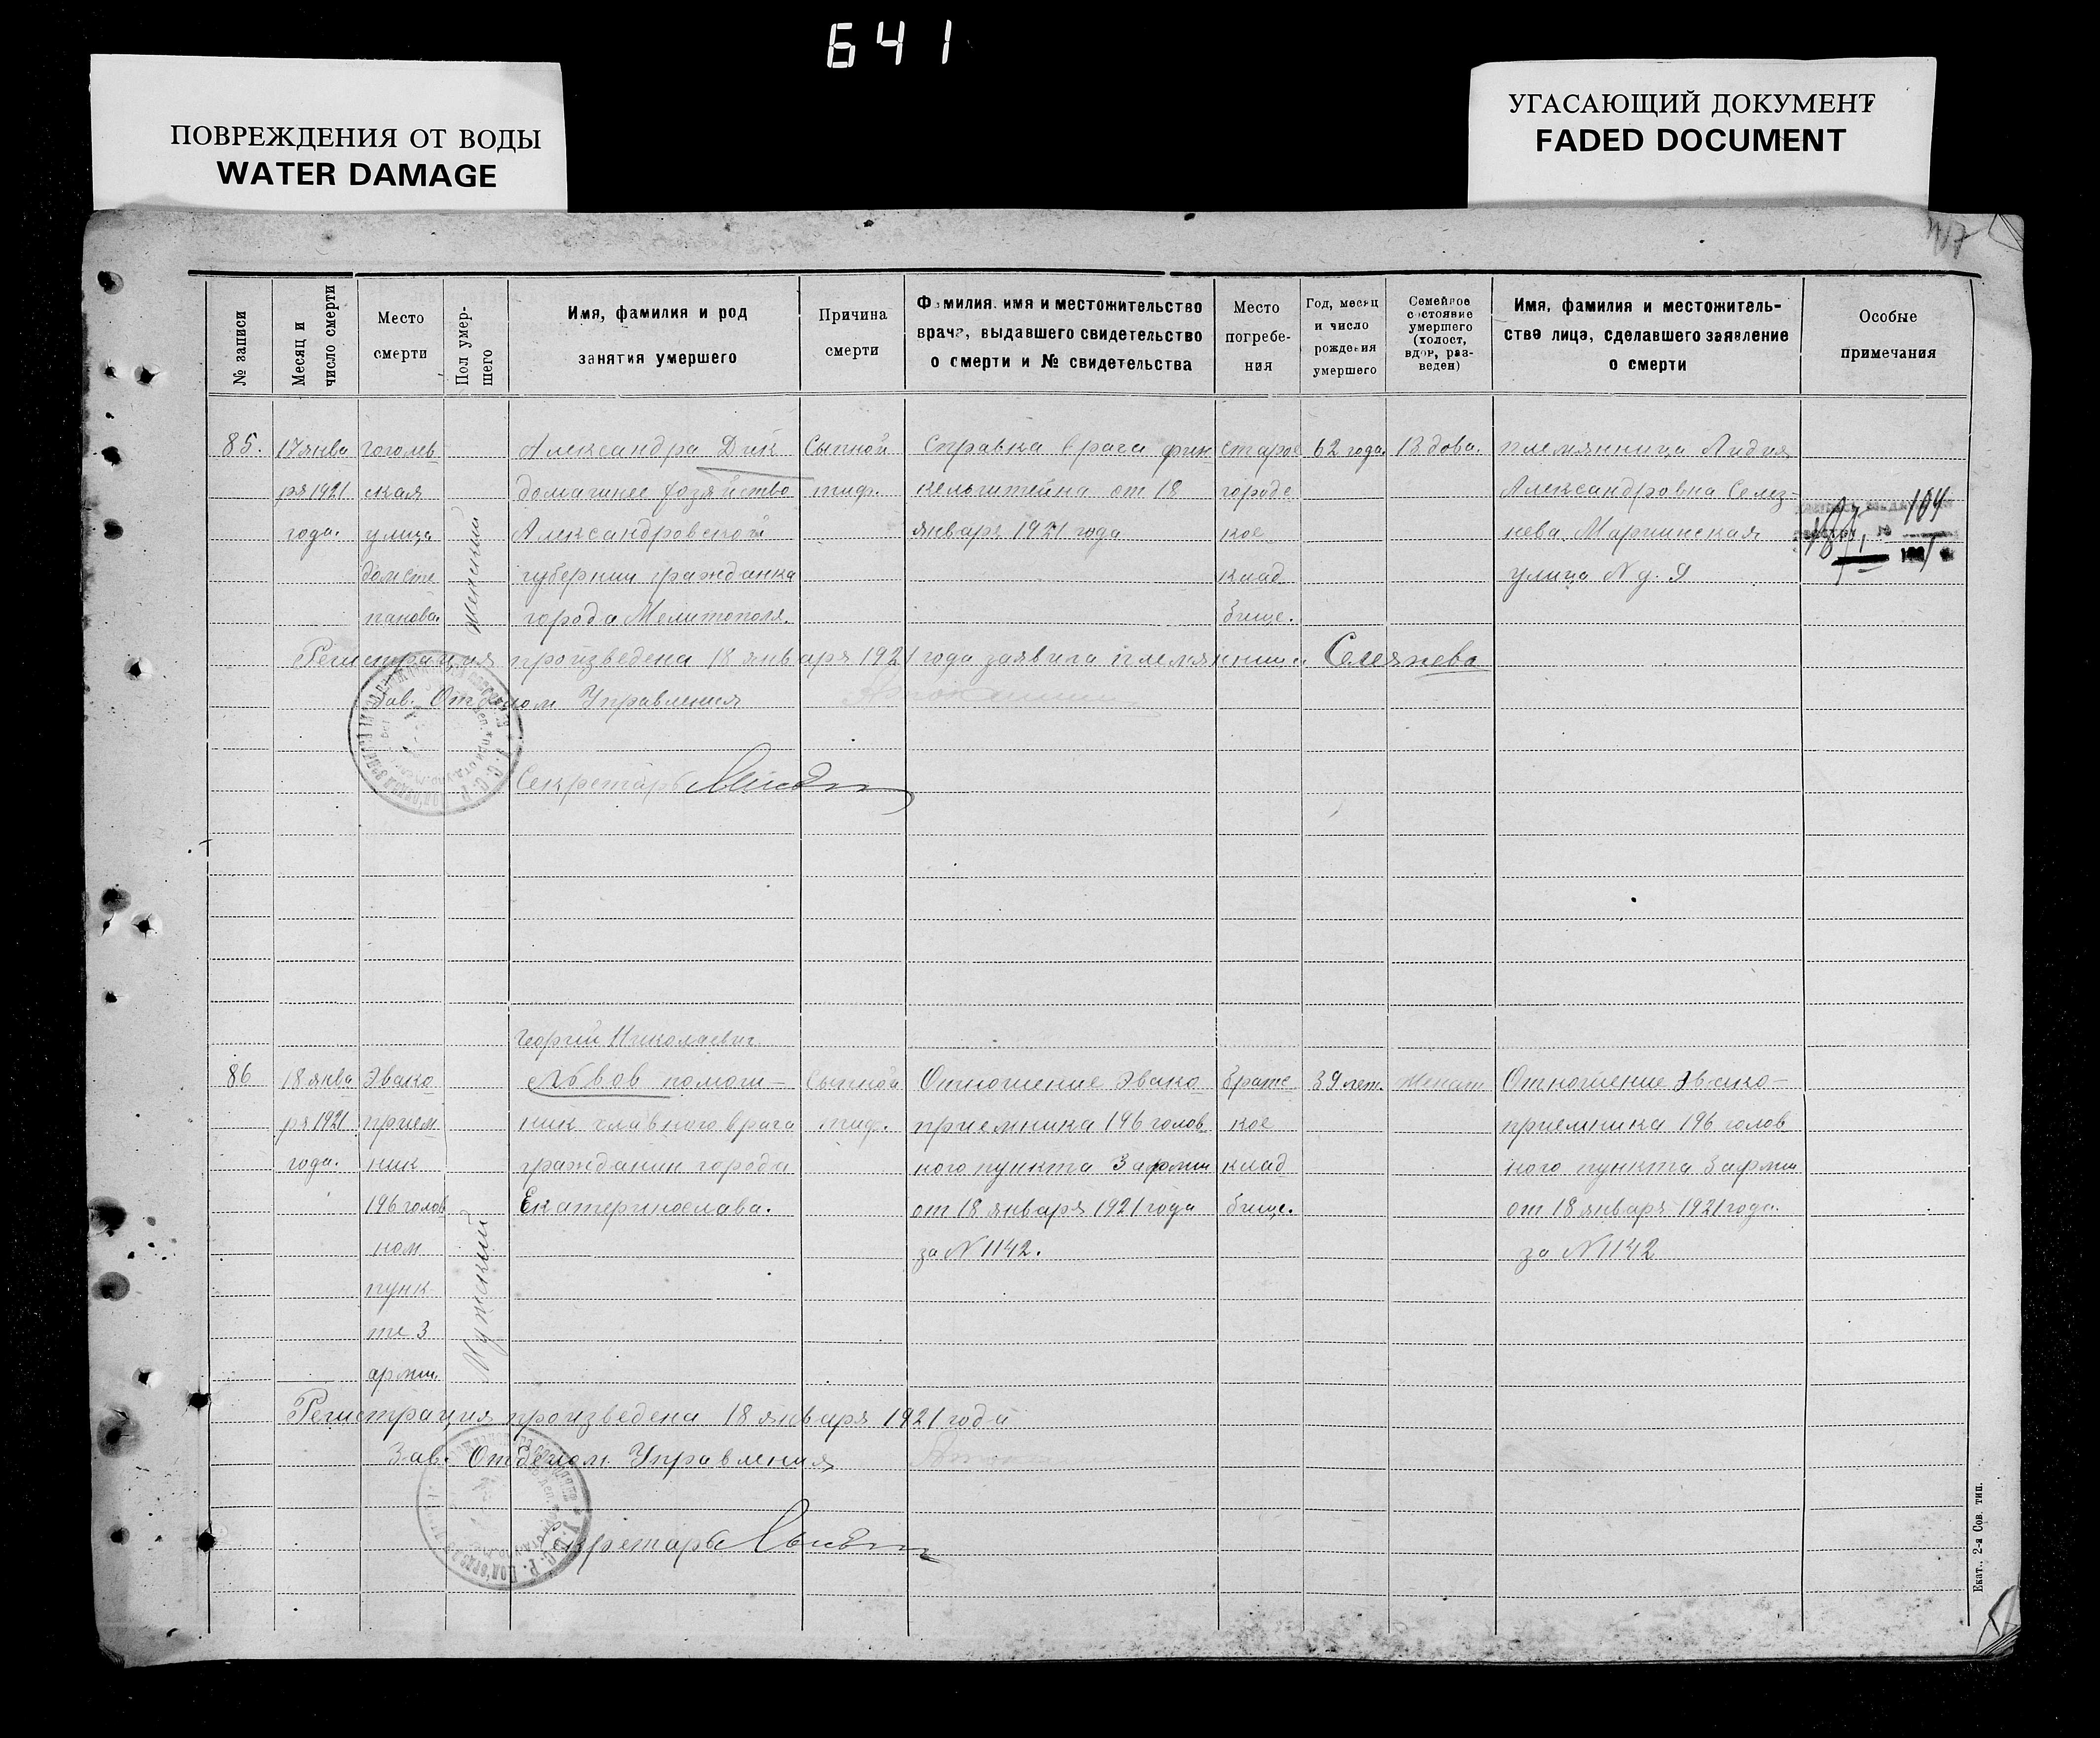 641
ПОВРЕЖДЕНИЯ ОТ ВОДЫ
WATER DAMAGE
УГАСАЮЩИЙ ДОКУМЕНТ
FADED DOCUMENT
№ записи
Месяц и число смерти
Место смерти
Пол умер-
шего
Имя, фамилия и род
занятия умершего
Причина
смерти
Фамилия, имя и местожительство
врача, выдавшего свидетельство
о смерти и № свидетельства
Место
погребе-
ния
Год, месяц
и число
рождения
умершего
Семейное
состояние
умершего
(холост,
вдов, раз-
веден)
Имя, фамилия и местожитель-
ство лица, сделавшего заявление
о смерти
Особые
примечания
85.
17 янва
ря 1921
года.
гоголев
ская
улица
дом Сте
панова.
женский
Александра Дик
домашнее хозяйство
Александровской
губернии гражданка
города Мелитополя.
Сыпной
тиф.
Справка врача Фин
кельштейна от 18
января 1921 года
старое
городс
кое
клад
бище.
62 года
Вдова.
племянница Лидия
Александровна Селез-
нева Мариинская
улица N д. 9
104
Регистрация произведена 18 января 1921 года заявила племянница
Зав. Отделом Управления
Секретарь
86
18 янва
ря 1921
года.
Эвако
прием
ник
196 голов
ном
пунк
те 3
армии
Мужской
Георгий Николаевич
Львов помощ-
ник главного врача
гражданин города
Екатеринослава.
Сыпной
тиф.
Отношение Эвако
приемника 196 голов
ного пункта 3 армии
от 18 января 1921 года
за N 1142.
братс
кое
клад
бище.
39 лет.
женат
Отношение Эвако-
приемника 196 голов
ного пункта 3 армии
от 18 января 1921 года.
за N 1142
Регистрация произведена 18 января 1921 года
Зав. Отделом Управления
Секретарь
Екат., 2-я Сов. тип.